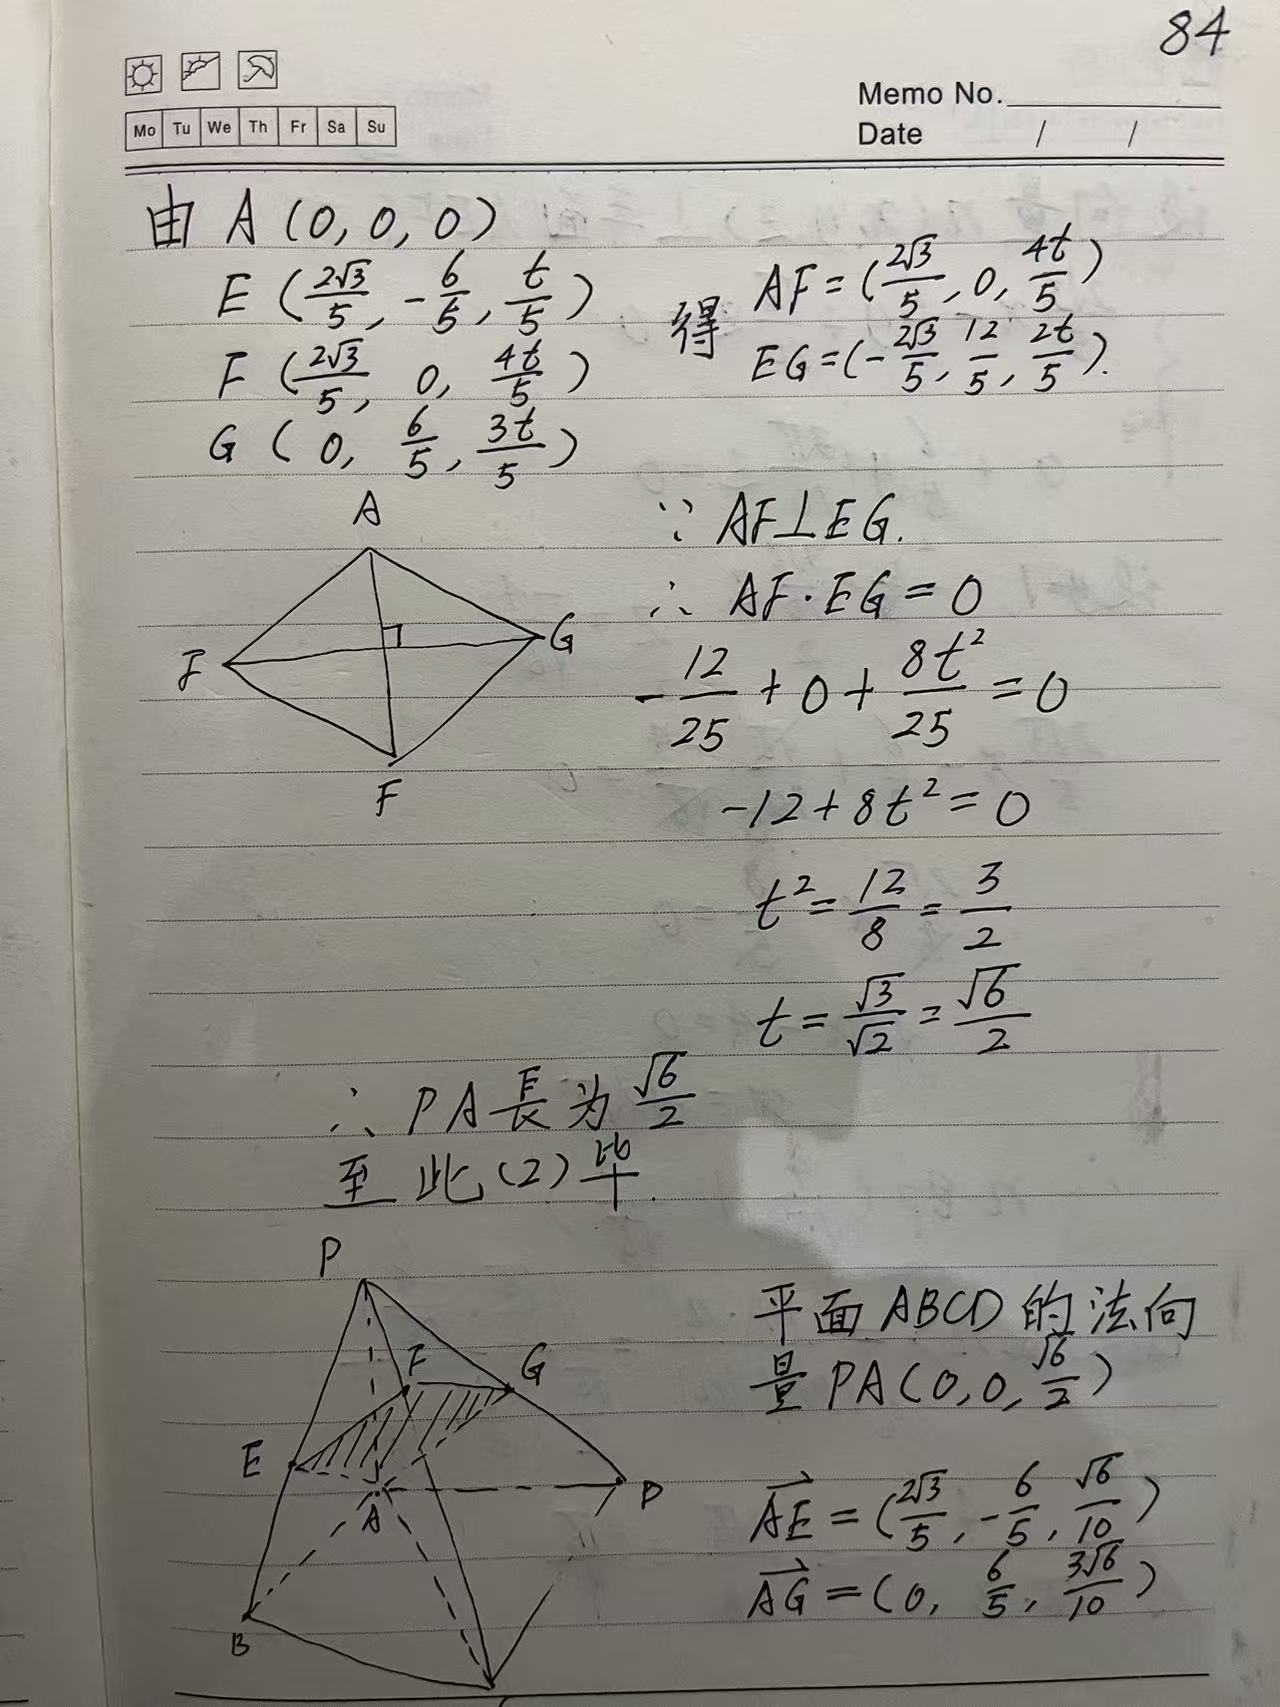 84
Memo No.
Date / /
Mo Tu We Th Fr Sa Su
由 A (0, 0, 0)
E (2√3/5, -6/5, t/5)
F (2√3/5, 0, 4t/5)
G (0, 6/5, 3t/5)
得 AF=(2√3/5, 0, 4t/5)
EG=(-2√3/5, 12/5, 2t/5).
A
F
G
F
∵ AF⊥EG.
∴ AF·EG=0
-12/25+0+8t²/25=0
-12+8t²=0
t²=12/8=3/2
t=√3/√2=√6/2
∴ PA長为√6/2
至此(2)毕.
P
F
G
E
A
D
B
平面ABCD的法向
量PA(0,0,√6/2)
AE→=(2√3/5, -6/5, √6/10)
AG→=(0, 6/5, 3√6/10)